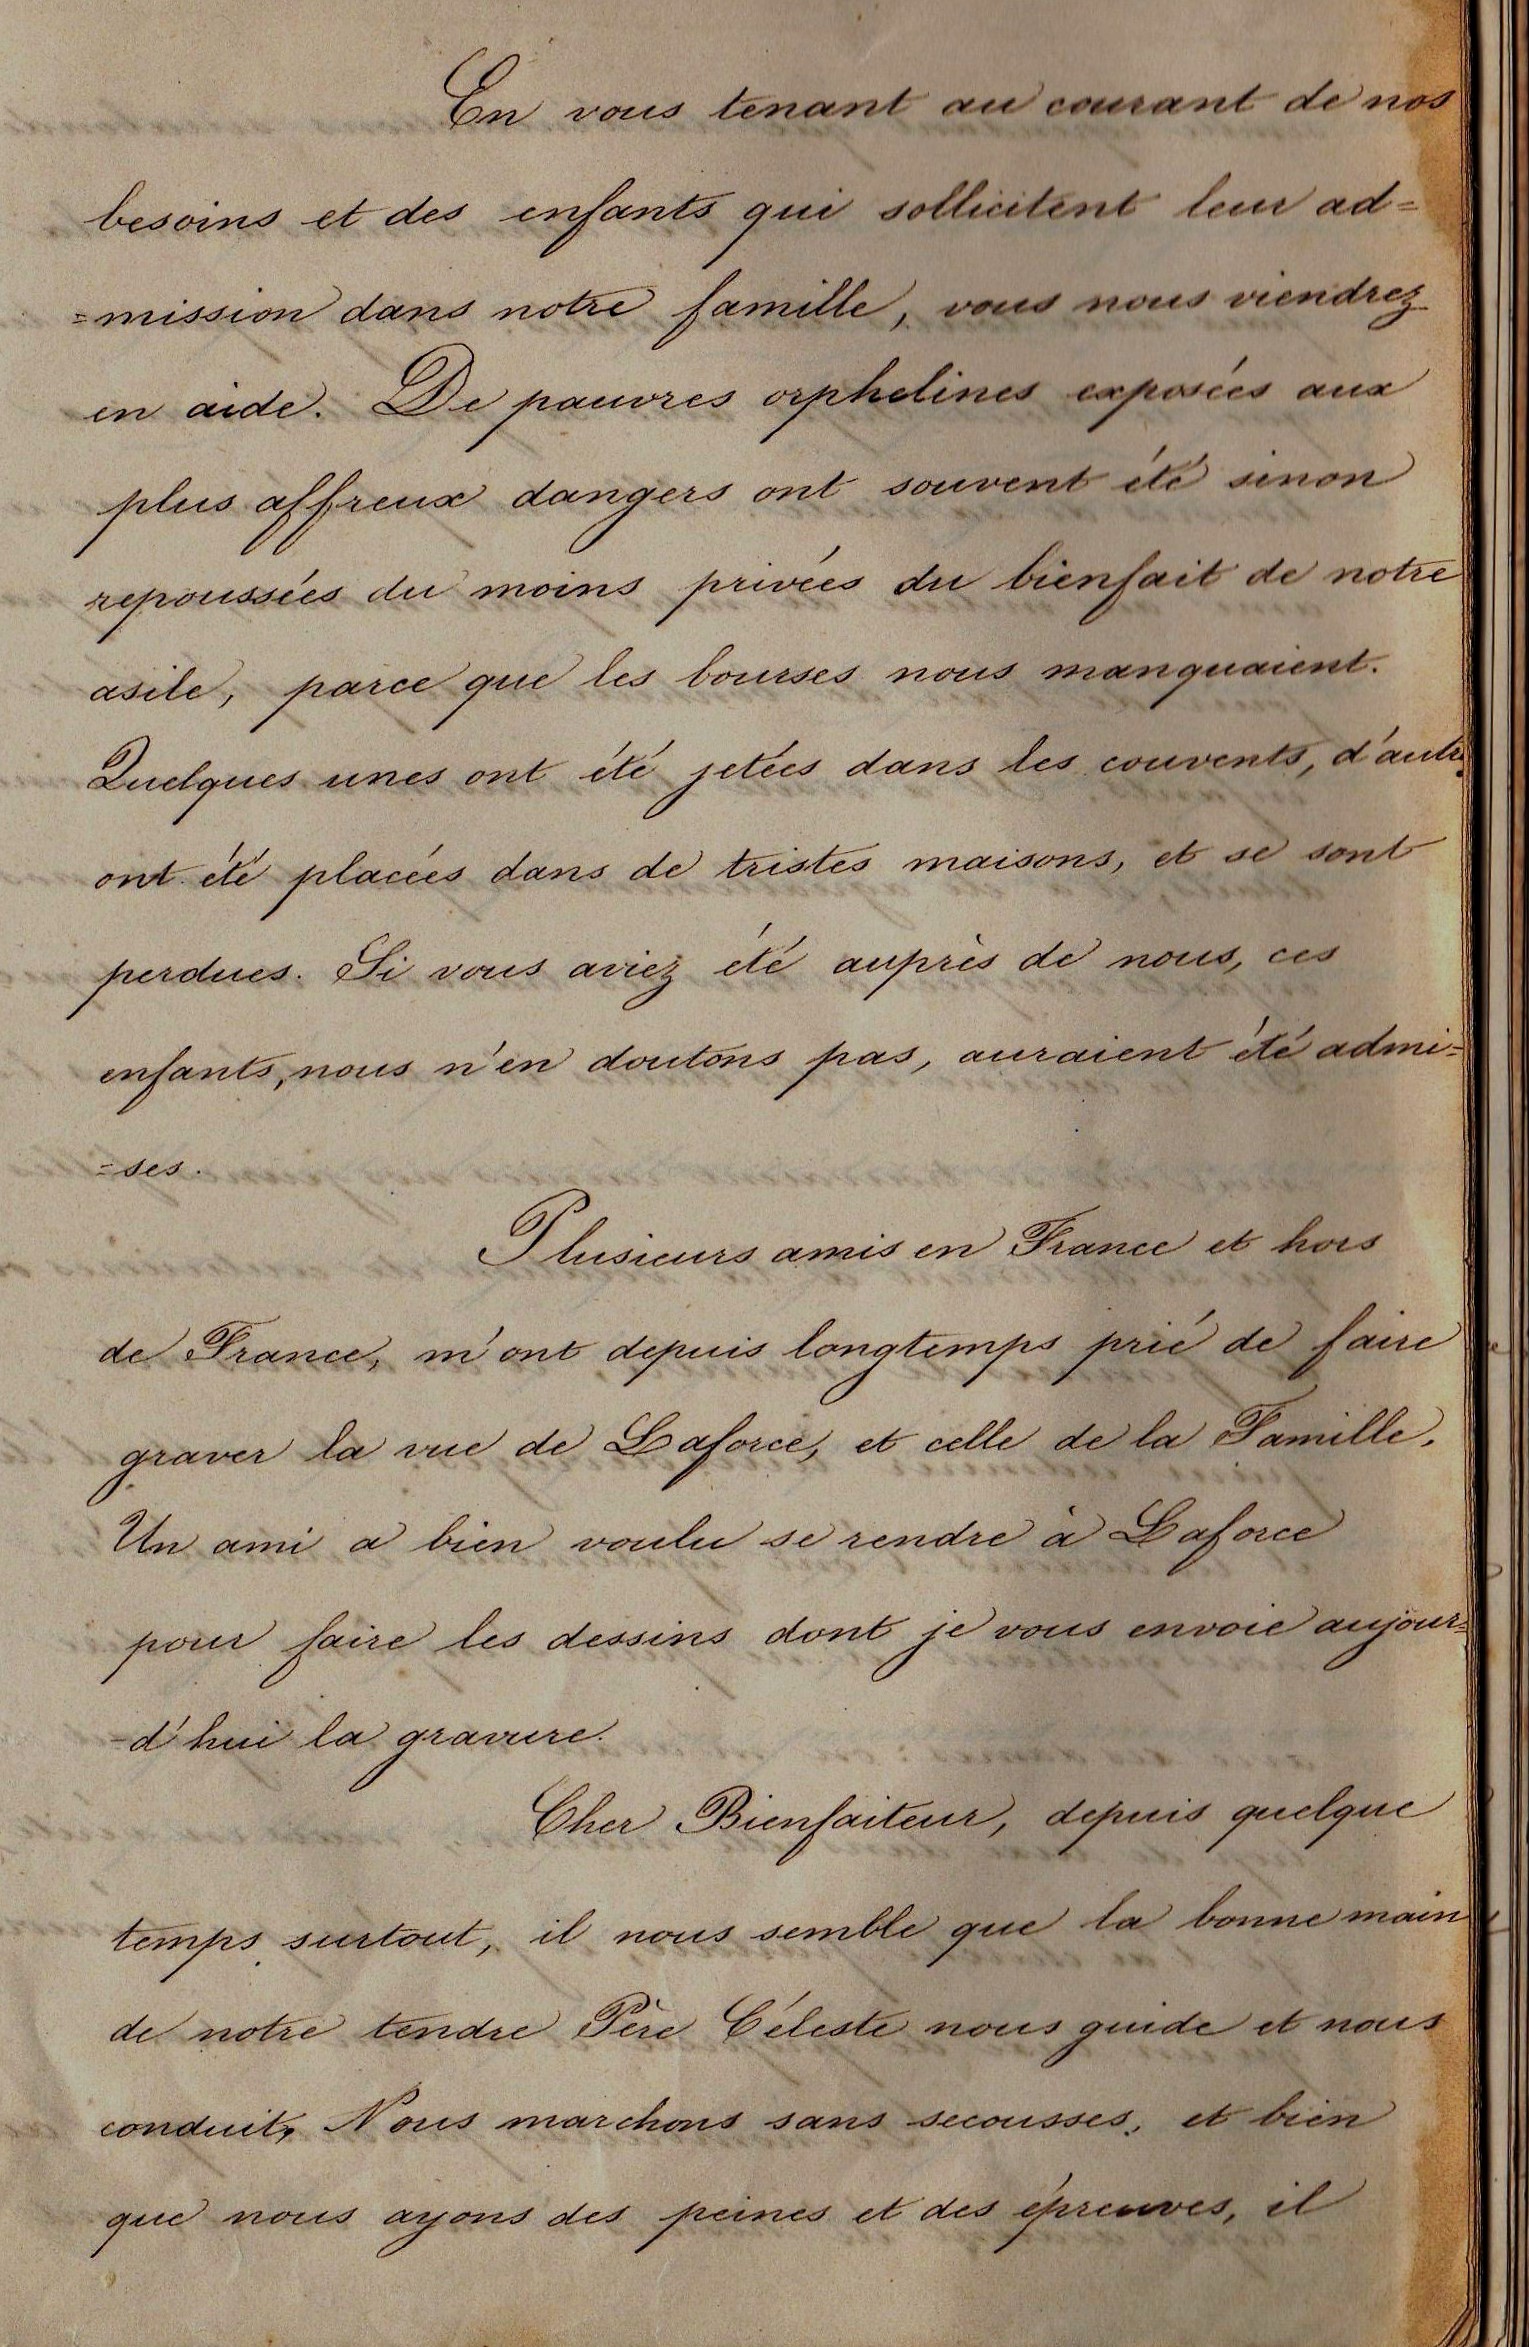 En vous tenant au courant de nos
besoins et des enfants qui sollicitent leur ad=
=mission dans notre famille, vous nous viendrez
en aide. De pauvres orphelines exposées aux
plus affreux dangers ont souvent été sinon
repoussées du moins privées du bienfait de notre
asile, parce que les bourses nous manquaient.
Quelques unes ont été jetées dans les couvents, d'autres
ont été placées dans de tristes maisons, et se sont
perdues. Si vous aviez été auprès de nous, ces
enfants, nous n'en doutons pas, auraient été admi=
=ses.
Plusieurs amis en France et hors
de France, m'ont depuis longtemps prié de faire
graver la vue de Laforce, et celle de la Famille.
Un ami a bien voulu se rendre à Laforce
pour faire les dessins dont je vous envoie aujour=
-d'hui la gravure.
Cher Bienfaiteur, depuis quelque
temps surtout, il nous semble que la bonne main
de notre tendre Père Céleste nous guide et nous
conduit. Nous marchons sans secousses, et bien
que nous ayons des peines et des épreuves, il